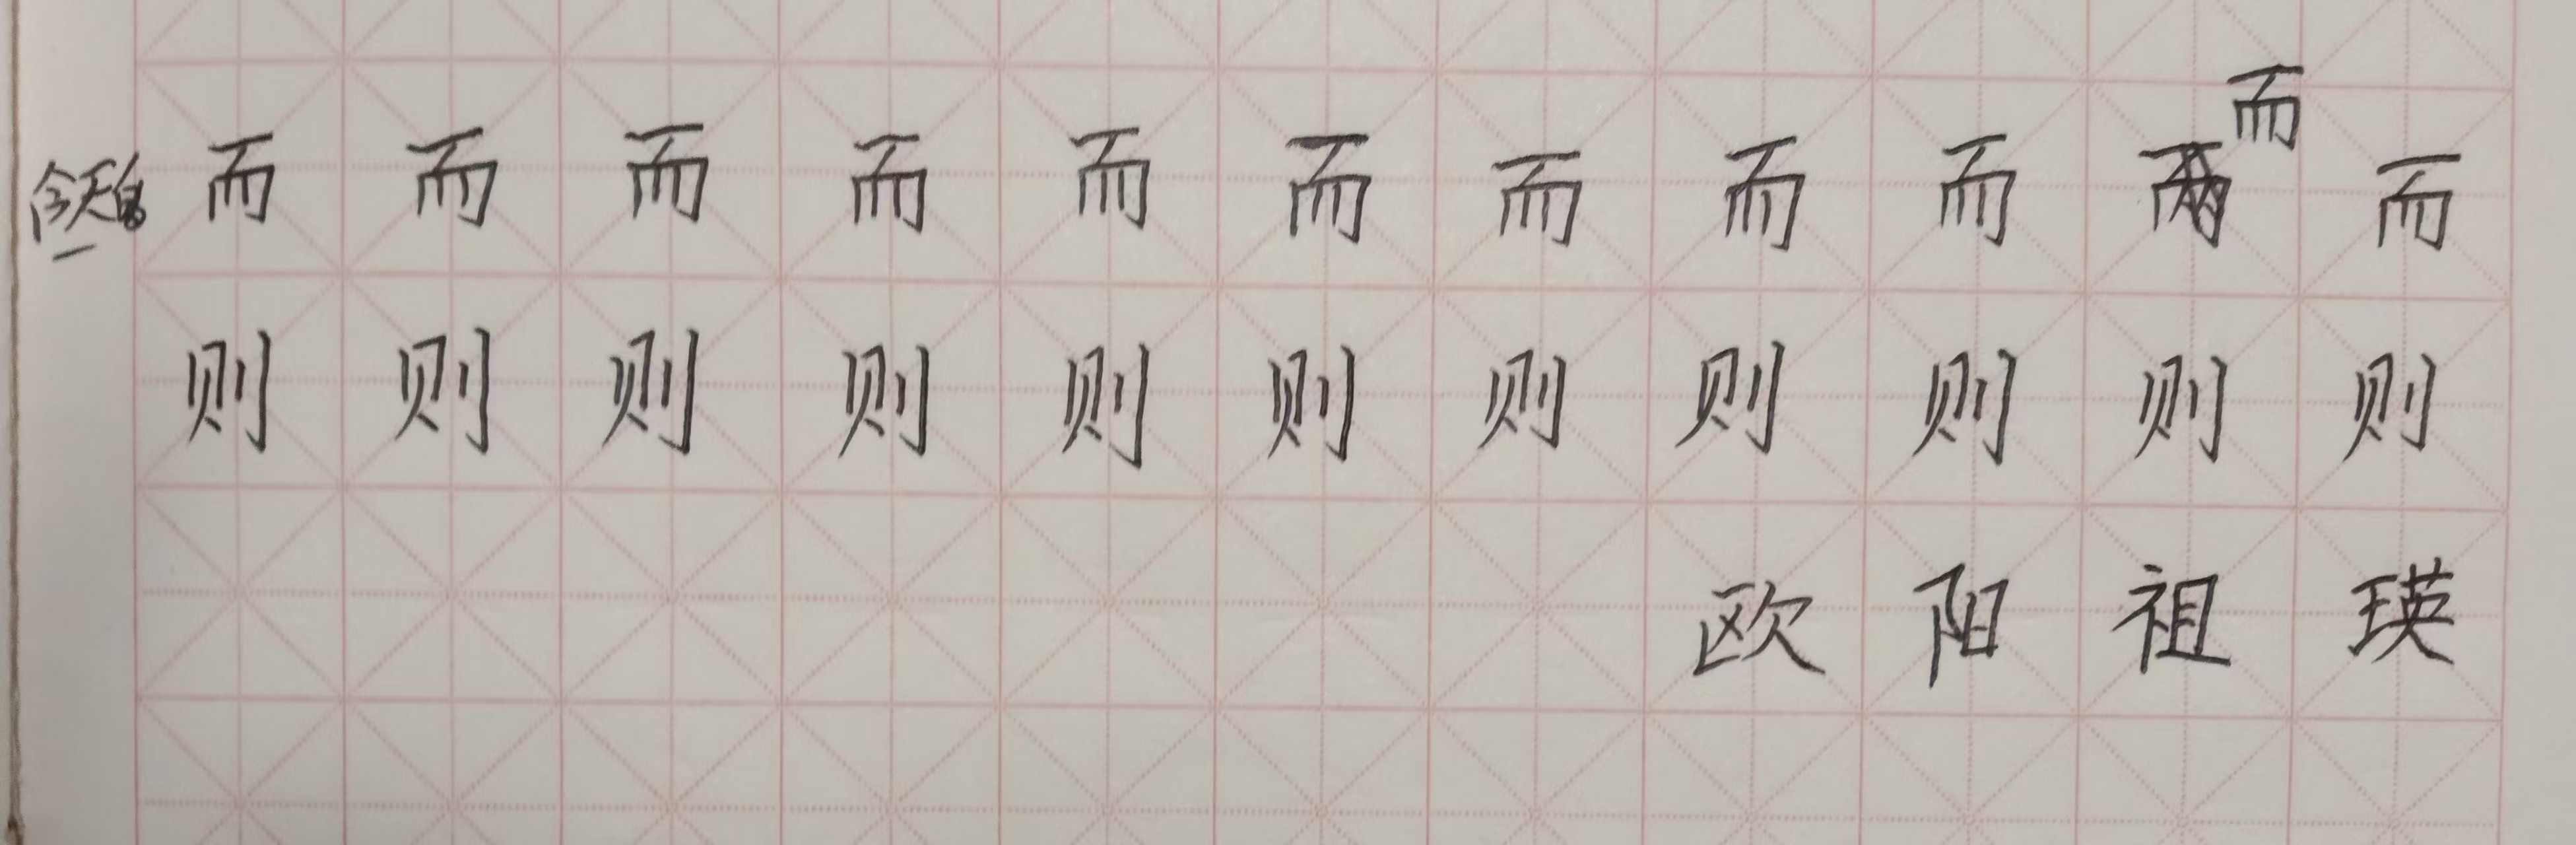 今天的 而 而 而 而 而 而 而 而 而 而 而
则 则 则 则 则 则 则 则 则 则 则
欧 阳 祖 瑛